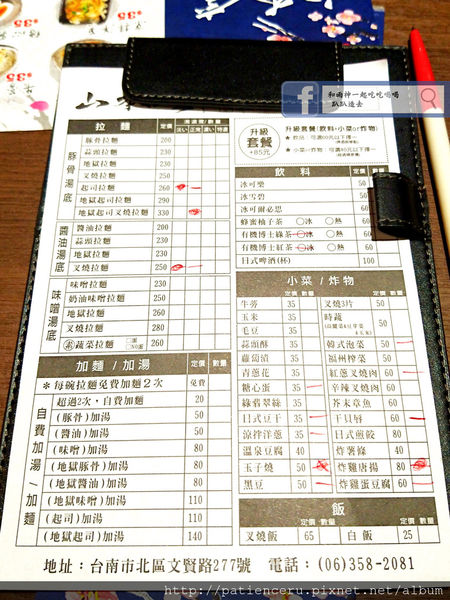 $35
$35
和雨神一起吃吃喝喝
趴趴造去
山
拉麵 定價 濃湯度/數量
淡い 正常 濃い 特濃
豚骨湯底
豚骨拉麵 200
蒜頭拉麵 210
地獄拉麵 210
叉燒拉麵 250
起司拉麵 260
地獄起司拉麵 290
地獄起司叉燒拉麵 330
醬油湯底
醬油拉麵 200
蒜頭拉麵 210
地獄拉麵 210
叉燒拉麵 250
味噌湯底
味噌拉麵 230
奶油味噌拉麵 250
地獄拉麵 240
叉燒拉麵 280
素 蔬菜拉麵 260
加麵/加湯 定價 數量
*每碗拉麵免費加麵2次 免費
自費加湯/加麵
超過2次,自費加麵 20
(豚骨)加湯 50
(醬油)加湯 50
(味噌)加湯 80
(地獄豚骨)加湯 80
(地獄醬油)加湯 80
(地獄味噌)加湯 110
(起司)加湯 110
(地獄起司)加湯 140
升級套餐
+85元
升級套餐(飲料+小菜or炸物)
飲料 定價 數量
冰可樂 50
冰雪碧 50
冰可爾必思 50
蜂蜜柚子茶 ○冰 ○熱 60
有機博士綠茶 ○冰 ○熱 60
有機博士紅茶 ○冰 ○熱 60
日式啤酒(杯) 100
小菜/炸物
定價 數量 定價 數量
牛蒡 35 叉燒3片 50
玉米 35 時蔬 60
毛豆 35
蒜頭酥 35 韓式泡菜 50
蘿蔔漬 35 福州榨菜 50
青蔥花 35 紅蔥叉燒肉 60
糖心蛋 35 辛辣叉燒肉 60
綠翡翠絲 35 芥末章魚 60
日式豆干 35 干貝唇 60
涼拌洋蔥 35 日式煎餃 80
溫泉豆腐 40 炸薯條 50
玉子燒 50 炸雞唐揚 80
黑豆 50 炸雞蛋豆腐 60
飯
定價 數量 定價 數量
叉燒飯 65 白飯 25
地址:台南市北區文賢路277號 電話:(06)358-2081
http://patienceru.pixnet.net/album